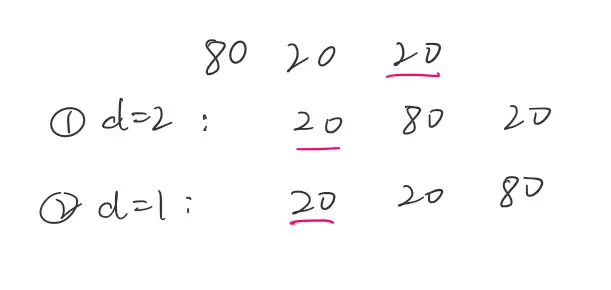 80 20 20
① d=2 : 20 80 20
② d=1 : 20 20 80